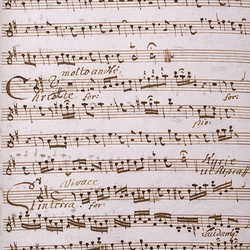 molto and.te
Christe for: for:
pia:
Kyrie
ut supra
Vivace
in terra for
Laudam